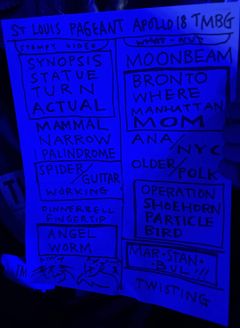 ST LOUIS PAGEANT APOLLO 18 TMBG
STOMPY VIDEO
SYNOPSIS
STATUE
TURN
ACTUAL
MAMMAL
NARROW
PALINDROME
SPIDER/GUITAR
WORKING
DINNERBELL
FINGERTIP
ANGEL
WORM
MOONBEAM
BRONTO
WHERE
MANHATTAN
MOM
ANA/NYC
OLDER/POLK
OPERATION
SHOEHORN
PARTICLE
BIRD
TWISTING